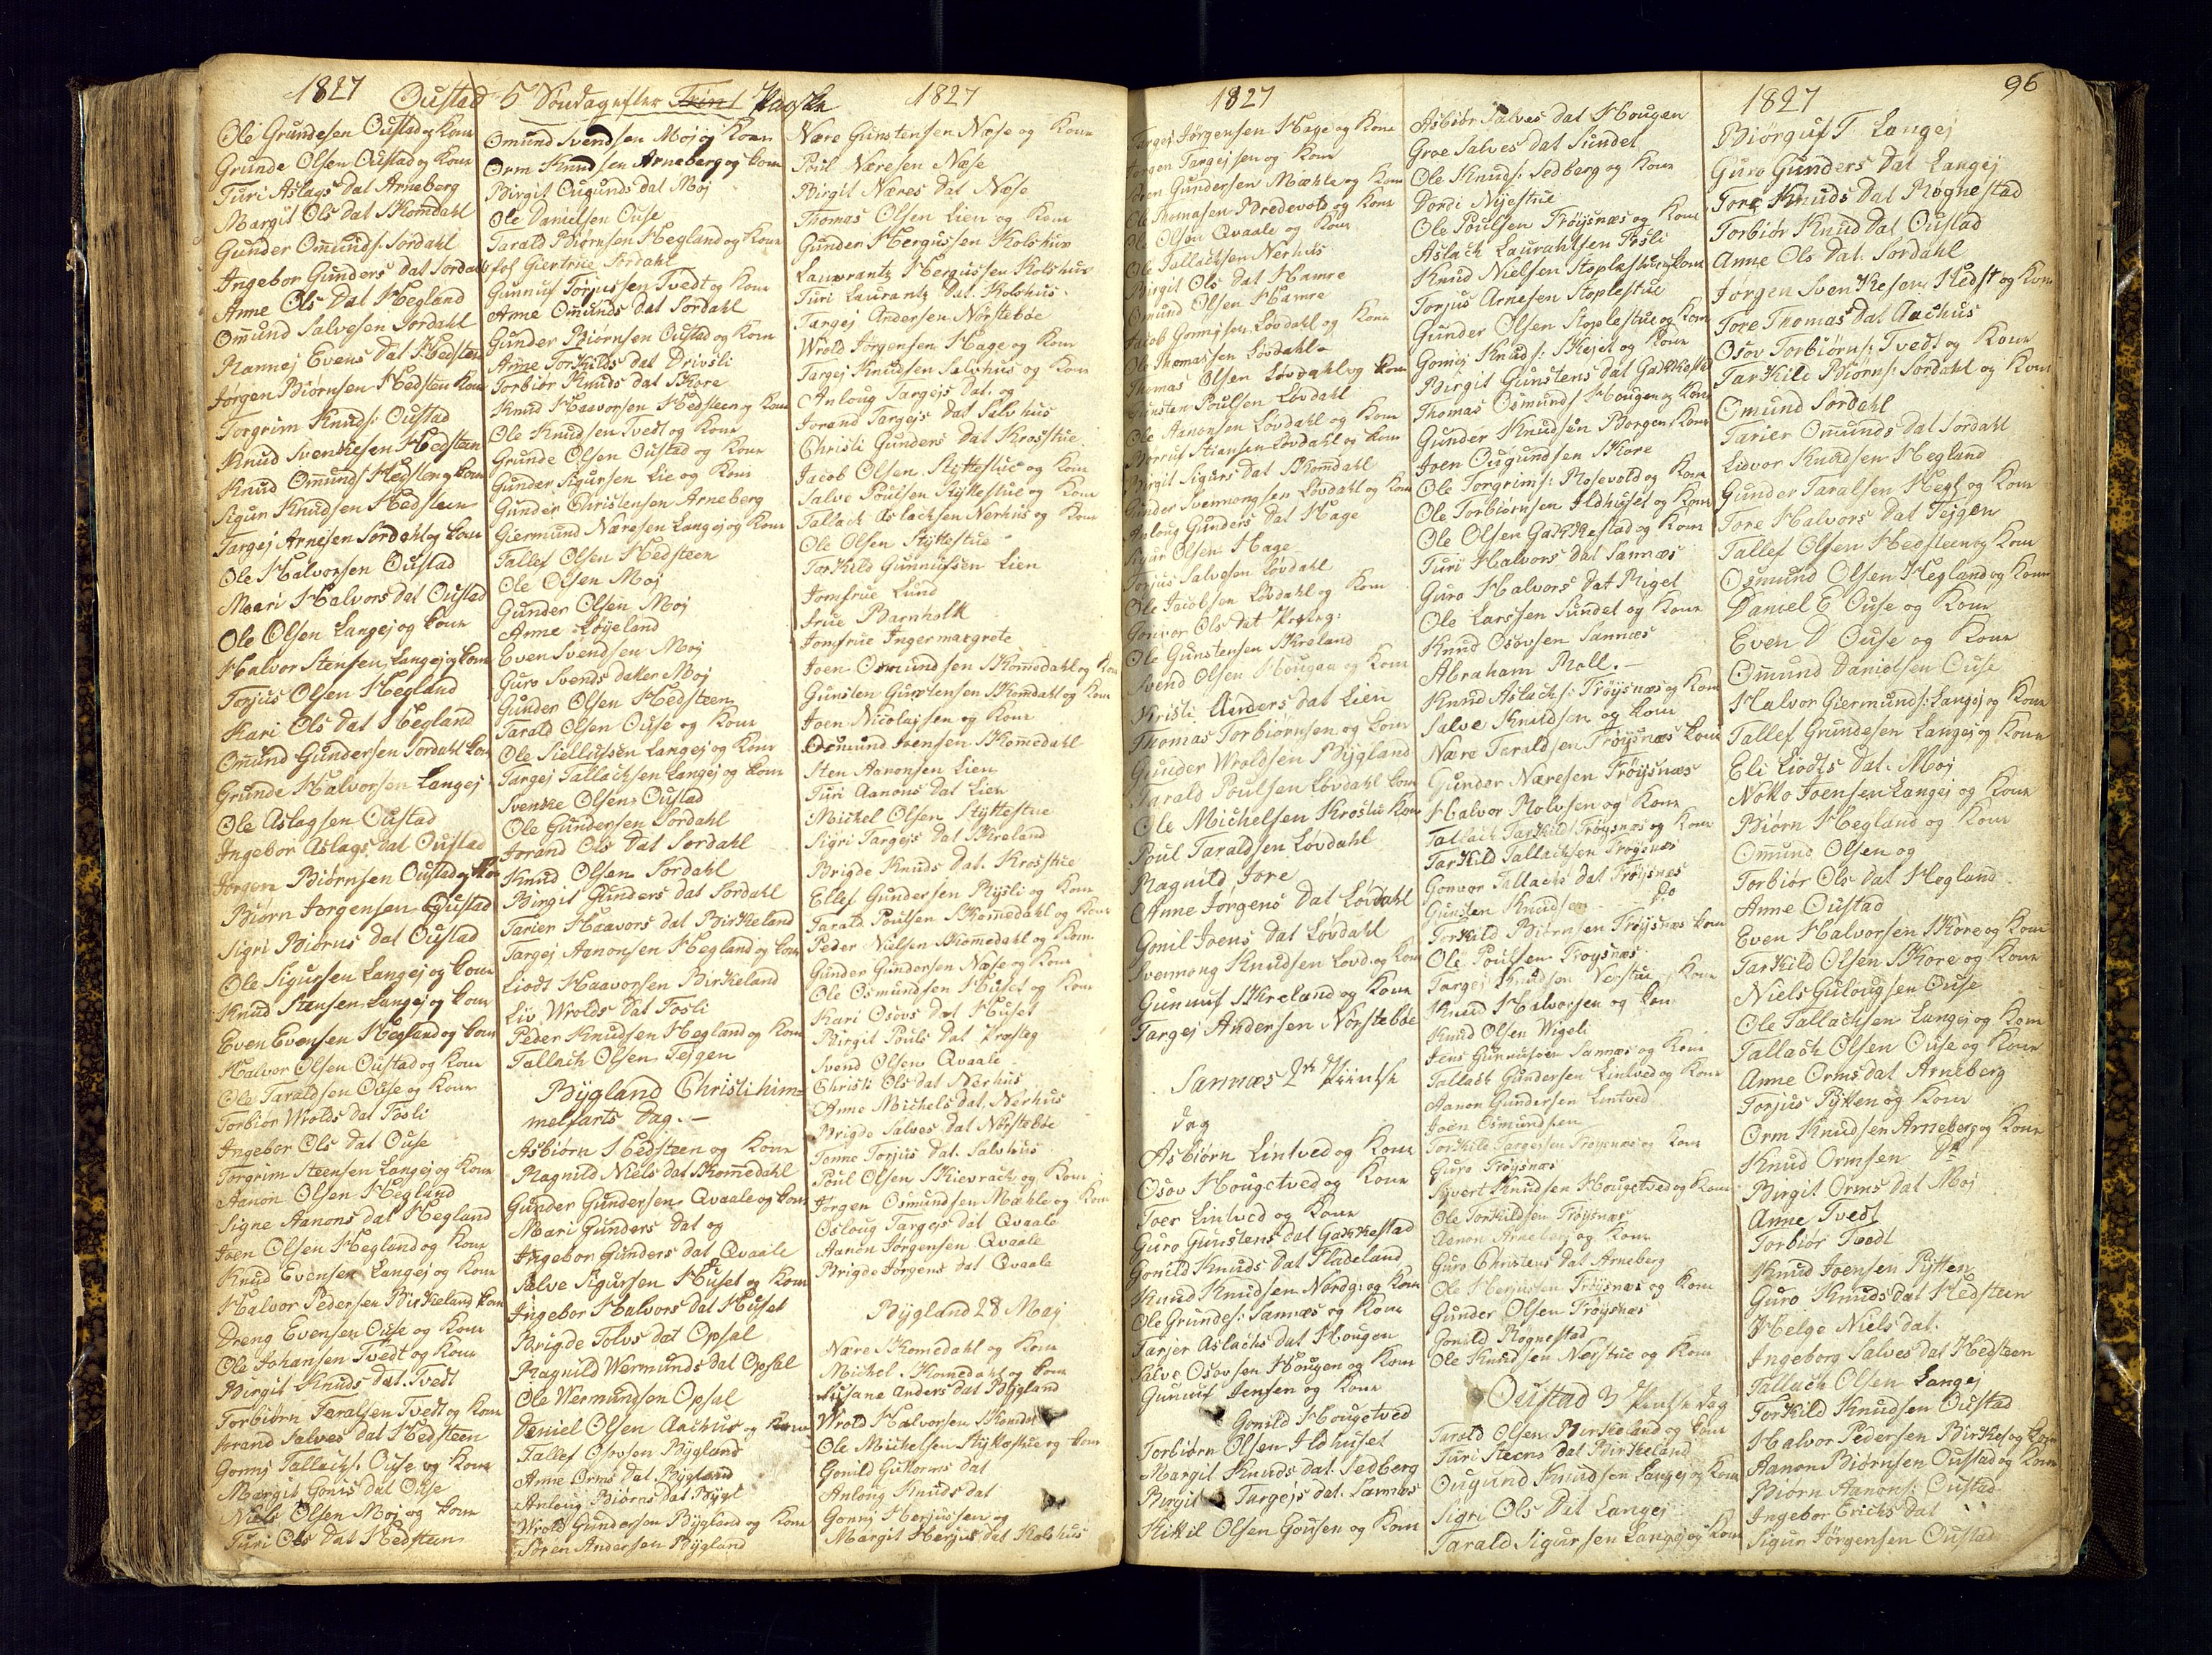 1827
Oustad 5 Søndag efter Trint Paaske
1827
Ole Grundesen Oustad og Kone
Grunde Olsen Oustad og Kone
Turi Aslags Dat Arneberg
Margit Ols Dat Skomdahl
Gunder Omunds: Sordahl
Ingebor Gunders Dat Sordahl
Anne Ols Dat Hegland
Omund Salvesen Sordahl
Rannej Evens Dat Hedsten
Jørgen Biørnsen Hedsten Kone
Torgrim Knuds: Oustad
Knud Svenkesen Hedsteen
Knud Omunds Hedsten og Kone
Sigur Knudsen Hedsteen
Targej Arnesen Sordahl og Kone
Ole Halvorsen Oustad
Maari Halvors Dat Oustad
Ole Olsen Langej og Kone
Halvor Stensen Langej og Kone
Torjus Olsen Hegland
Kari Ols Dat Hegland
Omund Gundersen Sordahl Kone
Grunde Halvorsen Langej
Ole Aslagsen Oustad
Ingebor Aslags Dat Oustad
Jørgen Biørnsen Oustad og Kone
Biørn Jorgensen Oustad
Sigri Biørns Dat Oustad
Ole Sigursen Langej og Kone
Knud Stensen Langej og Kone
Even Evensen Hegland og Kone
Halvor Olsen Oustad og Kone
Ole Taraldsen Ouse og Kone
Torbiør Wrolds Dat Fosli
Ingebor Ols Dat Ouse
Torgrim Steensen Langej og Kone
Aanon Olsen Hegland
Signe Aanons Dat Hegland
Joen Olsen Hegland og Kone
Knud Evensen Langej og Kone
Halvor Pedersen Birkeland Kone
Dreng Evensen Ouse og Kone
Ole Johansen Tvedt og Kone
Birgit Knuds Dat Tvedt
Torbiørn Taralsen Tvedt og Kone
Jorand Salves Dat Hedsteen
Gonni Tallachs: Ouse og Kone
Margit Gonis Dat Ouse
Niels Olsen Moj og Kone
Turi Ols Dat Hedsteen
Omund Svendsen Moj og Kone
Orm Knudsen Arneberg og Kone
Birgit Ougunds Dat Moj
Ole Danielsen Ouse
Tarald Biørnsen Hegland og Kone
Giertrue Sordahl
Gunnuf Torjussen Tvedt og Kone
Anne Omunds Dat Sordahl
Gunder Biørnsen Oustad og Kone
Anne Torkilds Dat Drivsli
Torbiør Knuds Dat Skore
Knud Haavorsen Hedsteen og Kone
Ole Knudsen Tvedt og Kone
Grunde Olsen Oustad og Kone
Gunder Sigursen Lie og Kone
Gunder Christensen Arneberg
Giermund Næresen Langej og Kone
Tallef Olsen Hedsteen
Ole Olsen Moj
Gunder Olsen Moj
Anne Løyeland
Even Svendsen Moj
Guro Svends datter Moj
Gunder Olsen Hedsteen
Tarald Olsen Ouse og Kone
Ole Kiellulsen Langej og Kone
Targej Tallachsen Langej og Kone
Svenke Olsen Oustad
Ole Gundersen Sordahl
Jorand Ols Dat Sordahl
Knud Olsen Sordahl
Birgit Gunders Dat Sordahl
Tarier Haavors Dat Birkeland
Targej Aanonsen Hegland og Kone
Liodt Haavorsen Birkeland
Liv Wrolds Dat Fosli
Peder Knudsen Hegland og Kone
Tallach Olsen Fejgen
Bygland Christi him=
melfarts Dag.—
Asbiørn Hedsteen og Kone
Ragnild Niels Dat Skomedahl
Gunder Gundersen Qvaale og Kone
Mari Gunders Dat og
Ingebor Gunders Dat Qvaale
Salve Sigursen Huset og Kone
Ingebor Halvors Dat Huset
Brigde Tolvs Dat Opsal
Ragnild Wermunds Dat Opsal
Ole Wermundsen Opsal
Daniel Olsen Aachus og Kone
Tallef Osovsen Bygland
Anne Orms Dat Bygland
Anloug Biørns Dat Bygl
Wrold Gundersen Bygland og Kone
Søren Andersen Bygland
Nære Gunstensen Næse og Kone
Poul Næresen Næse
Birgit Næres Dat Næse
Thomas Olsen Lien og Kone
Gunder Hergussen Kolshus
Laurantz Hergussen Kolshus
Turi Laurantz Dat. Kolshus
Targej Andersen Nørstebøe
Wrold Jørgensen Hage og Kone
Targej Knudsen Salvhus og Kone
Anloug Targejs Dat. og
Jorand Targejs Dat Salvhus
Christi Gunders Dat Krosstue
Jacob Olsen Støttestue og Kone
Salve Poulsen Støttestue og Kone
Tallach Aslachsen Nerhus og Kone
Ole Olsen Støttestue
Torkild Gunnufsen Lien
Jomfrue Lund
Frue Barnholk
Jomfrue Ingermargrete
Joen Osmundsen Skomedahl og Kone
Gunsten Gunstensen Skomdahl og Kone
Joen Nicolajsen og Kone
Osmund Joensen Skomedahl
Sten Aanonsen Lien
Turi Aanons Dat Lien
Michel Olsen Støttestue
Sigri Targejs Dat Skreland
Brigde Knuds Dat. Krosstue
Ellef Gundersen Rysli og Kone
Tarald Poulsen Skomedahl og Kone
Peder Nielsen Skomedahl og Kone
Gunder Gundersen Næse og Kone
Ole Osmundsen Huset og Kone
Kari Osovs Dat Huset
Birgit Pouls Dat Prosteg
Svend Olsen Qvaale
Christi Ols Dat Nerhus
Anne Michels Dat. Nerhus
Brigde Salves Dat Nørstebøe
Tonne Torjus Dat. Salvhus
Poul Olsen Skievrach og Kone
Jørgen Osmundsen Mæhle og Kone
Osloug Targejs Dat Qvaale
Aanon Jørgensen Qvaale
Brigde Jørgens Dat Qvaale
Bygland 28 Maj
Nære Skomedahl og Kone
Michel Skomedahl og Kone
Susane Anders Dat Bygland
Wrold Halvorsen Skomdal
Ole Michelsen Støttestue og Kone
Gonild Guttorms Dat
Anloug Knuds Dat
Gonni Herjussen og
Margit Herjus Dat Kolshus
1827
Targej Jørgensen Hage og Kone
Jørgen Targejsen og Kone
Gundersen Mæhle og Kone
Ole Thomasen Bredevold og Kone
Ole Olsen Qvaale og Kone
Ole Tallachsen Nerhus
Birgit Ols Dat Hamre
Omund Olsen Hamre
Jacob Gonnisen Løvdahl og Kone
Ole Thomassen Løvdahl
Thomas Olsen Løvdahl og Kone
Gunsten Poulsen Løvdahl
Ole Aanonsen Løvdahl og Kone
Stiansen Løvdahl og Kone
Birgit Sigurs Dat Skomdahl
Gunder Svennongsen Løvdahl og Kone
Anloug Gunders Dat Hage
Sigur Olsen Hage
Torjus Salvesen Løvdahl
Ole Jacobsen Løvdahl og Kone
Gonvor Ols Dat Prsteg:
Ole Gunstensen Skreland
Svend Olsen Hougan og Kone
Kristi Anders Dat Lien
Thomas Torbiørnsen og Kone
Gunder Wroldsen Bygland
Tarald Poulsen Løvdahl Kone
Ole Michelsen Krostue Kone
Poul Taraldsen Løvdahl
Ragnild Jore
Anne Jorgens Dat Løvdahl
Gonil Joens Dat Løvdahl
Svennong Knudsen Løvd. og Kone
Gunnuf Skreland og Kone
Targej Andersen Nørstebøe
Sannæs 2den Piintse
Dag
Asbiørn Lintved og Kone
Osov Hougetved og Kone
Toer Lintved og Kone
Guro Gunstens Dat Gakkestad
Gonild Knuds Dat Fladeland
Knud Knudsen Nordg: og Kone
Ole Grundes: Sannæs og Kone
Tarjer Aslachs Dat Hougen
Salve Osovsen Hougen og Kone
Gunuf Jensen og Kone
Gonild Hougetved
Torbiørn Olsen Ildhuset
Margit Knuds Dat. Sedberg
Birgit Targejs Dat. Sannæs
Kittil Olsen Gousen og Kone
Asbiør Salves Dat Hougen
Groe Salves Dat Sundet
Ole Knuds: Sedberg og Kone
Dordi Nyestue
Ole Poulsen Frøysnæs og Kone
Aslach Laurantsen Fosli
Knud Nielsen Stoplestue og Kone
Torjus Arnesen Stoplestue
Gunder Olsen Stoplestue og Kone
Gonni Knuds: Skejet og Kone
Birgit Gunstens Dat Gakkestad
Thomas Osmunds Hougen og Kone
Gunder Knudsen Borgen Kone
Joen Ougundsen Skore
Ole Torgrims: Rosevold og Kone
Ole Torbiørnsen Ildhuset og Kone
Ole Olsen Gakkestad og Kone
Turi Halvors Dat Sannæs
Guro Halvors Dat Riget
Ole Larssen Sundet og Kone
Knud Osovsen Sannæs
Abraham Roll.—
Knud Aslachs: Frøysnæs og Kone
Salve Knudsen og Kone
Nære Taraldsen Frøysnæs Kone
Gunder Næresen Frøysnæs
Halvor Rolvsen og Kone
Tallach Tarkilds Frøysnæs og Kone
Tarkild Tallachsen Frøysnæs
Gonvor Tallachs Dat Frøysnæs
Gunsten Knudsen Do
Torkild Biørnsen Frøysnæs Kone
Ole Poulsen Frøysnæs
Targej Knudsen Nerstue Kone
Knud Halvorsen og Kone
Knud Olsen Wigeli
Jens Gunnufsen Sannæs og Kone
Tallach Gundersen Lintved og Kone
Aanon Gundersen Lintved
Joen Osmundsen
Torkild Targejsen Frøysnæs og Kone
Guro Frøysnæs
Syvert Knudsen Hougetved og Kone
Ole Torkildsen Frøysnæs
Aanon Arneberg og Kone
Guro Christens Dat Arneberg
Ole Herjussen Frøysnæs og Kone
Gunder Olsen Frøysnæs
Gonild Rognestad
Ole Knudsen Nerstue og Kone
Oustad 3 Pintse Dag
Tarald Olsen Birkeland og Kone
Turi Steens Dat Birkeland
Ougund Knudsen Langej og Kone
Sigri Ols Dat Langej
Tarald Sigursen Langej og Kone
1827
96
Biørguf T Langej
Guro Gunders Dat Langej
Tore Knuds Dat Rognestad
Torbiør Knud Dat Oustad
Anne Ols Dat. Sordahl
Jorgen Svenkesen Hedst og Kone
Tore Thomas Dat Aachus
Osov Torbiørns: Tvedt og Kone
Tarkild Biørns: Sordahl og Kone
Omund Sordahl
Tarier Omunds Dat Sordahl
Lidvor Knudsen Hegland
Gunder Taralsen Hegl og Kone
Tore Halvors Dat Fejgen
Tallef Olsen Hedsteen og Kone
Osmund Olsen Hegland og Kone
Daniel E Ouse og Kone
Even D Ouse og Kone
Omund Danielsen Ouse
Halvor Giermunds: Langej og Kone
Tallef Grundesen Langej og Kone
Eli Liodts Dat. Moj
Notto Joensen Langej og Kone
Biørn Hegland og Kone
Omund Olsen og
Torbiør Ols Dat Hegland
Anne Oustad
Even Halvorsen Skore og Kone
Tarkild Olsen Skore og Kone
Niels Gulougsen Ouse
Ole Tallachsen Langej og Kone
Tallach Olsen Ouse og Kone
Anne Orms Dat Arneberg
Torjus Pytten og Kone
Orm Knudsen Arneberg og Kone
Knud Ormsen Do
Birgit Orms Dat Moj
Anne Tvedt
Torbiør Tvedt
Knud Joensen Pytten
Guro Knuds Dat Hedsteen
Helge Niels Dat.
Ingeborg Salves Dat Hedsteen
Tallach Olsen Langej
Torkild Knudsen Oustad
Halvor Pedersen Birkes og Kone
Aanon Biørnsen Oustad og Kone
Biørn Aanons: Oustad
Ingebor Erichs Dat
Sigur Jørgensen Oustad